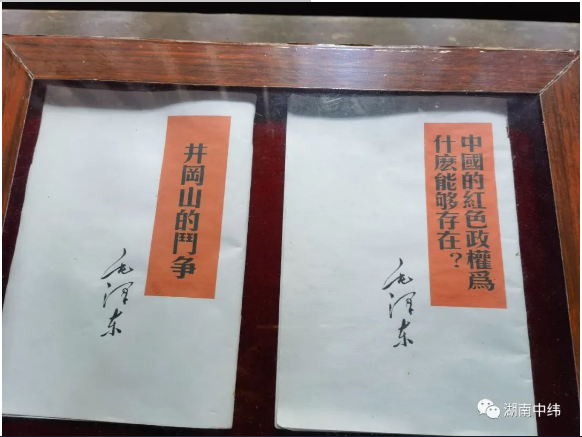 井岡山的鬥争
毛泽东
中國的紅色政權爲
什麽能够存在？
毛泽东
湖南中纬